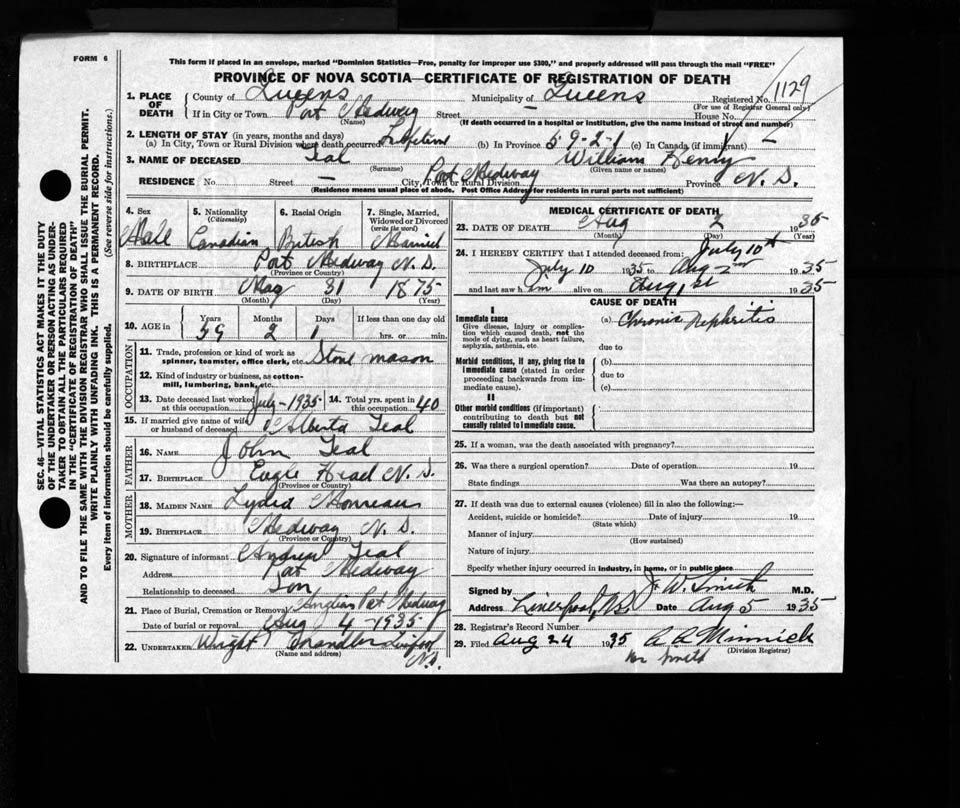 FORM 6
This form if placed in an envelope, marked "Dominion Statistics—Free, penalty for improper use $300," and properly addressed will pass through the mail "FREE"
PROVINCE OF NOVA SCOTIA—CERTIFICATE OF REGISTRATION OF DEATH
SEC. 46—VITAL STATISTICS ACT MAKES IT THE DUTY
OF THE UNDERTAKER OR PERSON ACTING AS UNDER-
TAKER TO OBTAIN ALL THE PARTICULARS REQUIRED
IN THE "CERTIFICATE OF REGISTRATION OF DEATH"
AND TO FILE THE SAME WITH THE DIVISION REGISTRAR WHO SHALL ISSUE THE BURIAL PERMIT.
WRITE PLAINLY WITH UNFADING INK. THIS IS A PERMANENT RECORD.
Every item of information should be carefully supplied. (See reverse side for instructions.)
1. PLACE OF DEATH County of Queens Municipality of Queens Registered No. 1129
(For use of Registrar General only)
If in City or Town Port Medway Street — House No.
(Name) (If death occurred in a hospital or institution, give the name instead of street and number)
2. LENGTH OF STAY (in years, months and days)
(a) In City, Town or Rural Division where death occurred Lifetime (b) In Province 59-2-1 (c) In Canada (if immigrant) —
3. NAME OF DECEASED Teal William Henry
(Surname) (Given name or names)
RESIDENCE No. Street — City, Town or Rural Division Port Medway Province N. S.
(Residence means usual place of abode. Post Office Address for residents in rural parts not sufficient)
4. Sex Male
5. Nationality (Citizenship) Canadian
6. Racial Origin British
7. Single, Married, Widowed or Divorced (write the word) Married
8. BIRTHPLACE Port Medway N. S.
(Province or Country)
9. DATE OF BIRTH May 31 1875
(Month) (Day) (Year)
10. AGE in Years 59 Months 2 Days 1 If less than one day old hrs. or min.
OCCUPATION
11. Trade, profession or kind of work as spinner, teamster, office clerk, etc. Stone mason
12. Kind of industry or business, as cotton-mill, lumbering, bank, etc.
13. Date deceased last worked at this occupation July-1935 14. Total yrs. spent in this occupation 40
15. If married give name of wife or husband of deceased Alberta Teal
FATHER
16. NAME John Teal
17. BIRTHPLACE Eagle Head N. S.
(Province or Country)
MOTHER
18. MAIDEN NAME Lydia
19. BIRTHPLACE Medway N. S.
(Province or Country)
20. Signature of informant Andrew Teal
Address Port Medway
Relationship to deceased Son
21. Place of Burial, Cremation or Removal Port Medway
Date of burial or removal Aug 4 - 1935
22. UNDERTAKER Wright Chandler Liverpool N.S.
(Name and address)
MEDICAL CERTIFICATE OF DEATH
23. DATE OF DEATH Aug 2 1935
(Month) (Day) (Year)
24. I HEREBY CERTIFY that I attended deceased from: July 10th
July 10 1935 to Aug 2nd 1935
and last saw him alive on Aug 1st 1935
CAUSE OF DEATH
I
Immediate cause (a) Chronic Nephritis
Give disease, injury or complica-
tion which caused death, not the
mode of dying, such as heart failure,
asphyxia, asthenia, etc. due to
Morbid conditions, if any, giving rise to (b)
immediate cause (stated in order due to
proceeding backwards from im-
mediate cause). (c)
II
Other morbid conditions (if important)
contributing to death but not
causally related to immediate cause.
25. If a woman, was the death associated with pregnancy?
26. Was there a surgical operation? Date of operation 19
State findings Was there an autopsy?
27. If death was due to external causes (violence) fill in also the following:—
Accident, suicide or homicide? Date of injury 19
(State which)
Manner of injury
(How sustained)
Nature of injury
Specify whether injury occurred in industry, in home, or in public place
Signed by J. W. Smith M.D.
Address Liverpool, N.S. Date Aug 5 1935
28. Registrar's Record Number
29. Filed Aug 24 1935 Minnick
(Division Registrar)
per Smith